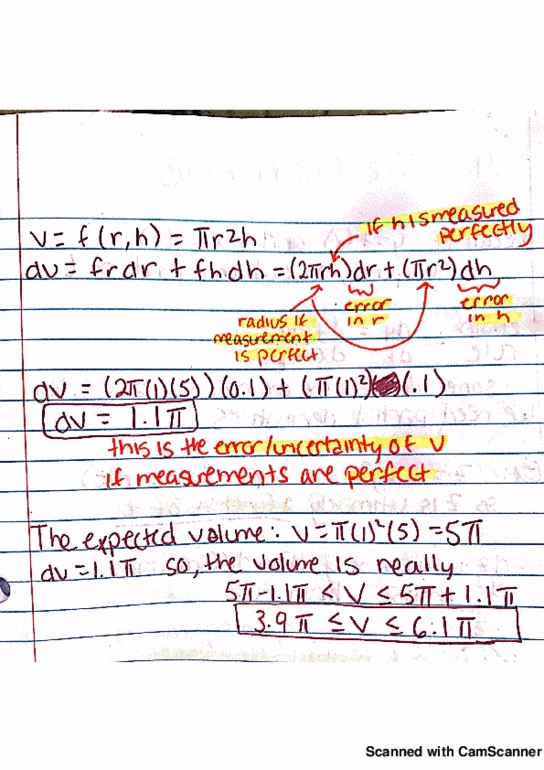 if h is measured
perfectly
V = f(r,h) = πr²h
dV = frdr + fhdh = (2πrh)dr + (πr²)dh
radius if
measurement
is perfect
error
in r
error
in h
dV = (2π(1)(5))(0.1) + (π(1)²)(.1)
dV = 1.1π
this is the error/uncertainty of V
if measurements are perfect
The expected volume: V=π(1)²(5) = 5π
dV=1.1π so, the volume is really
5π-1.1π ≤ V ≤ 5π+1.1π
3.9π ≤ V ≤ 6.1π
Scanned with CamScanner